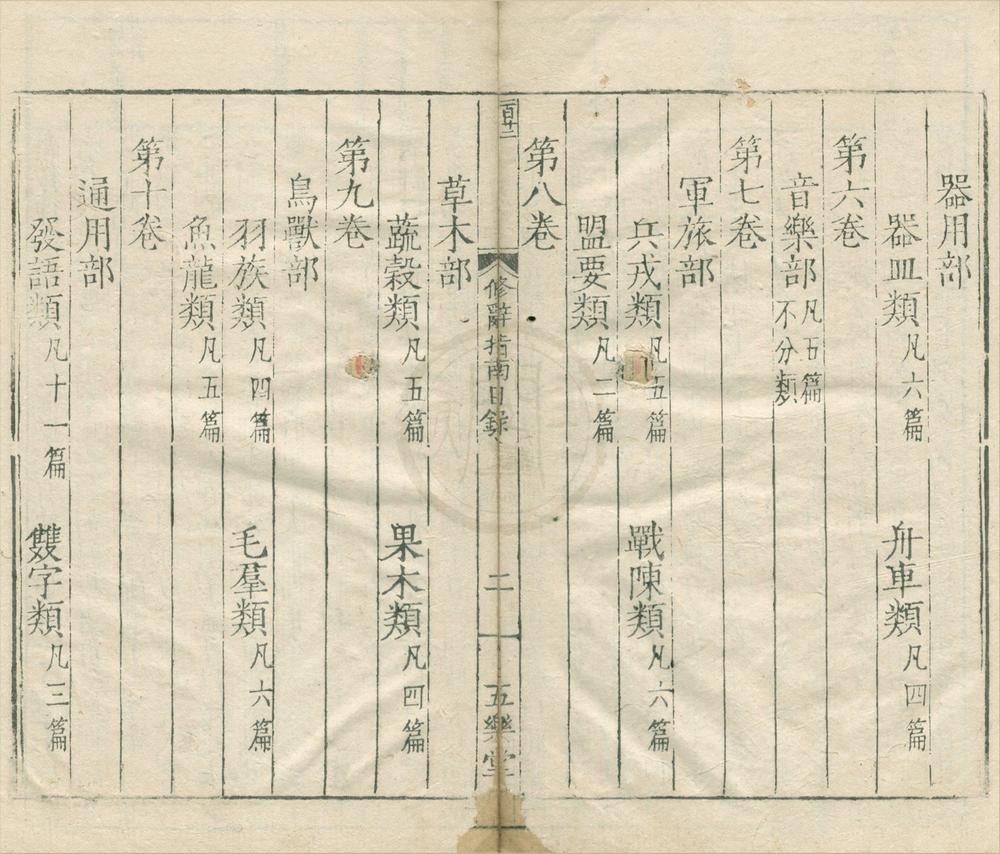 器用部
器皿類凡六篇　舟車類凡四篇
第六卷
音樂部凡五篇不分類
第七卷
軍旅部
兵戎類凡五篇　戰陳類凡六篇
盟要類凡二篇
第八卷
百十二
修辭指南目錄　二　五樂堂
草木部
蔬穀類凡五篇　果木類凡四篇
第九卷
鳥獸部
羽族類凡四篇　毛羣類凡六篇
魚龍類凡五篇
第十卷
通用部
發語類凡十一篇　雙字類凡三篇